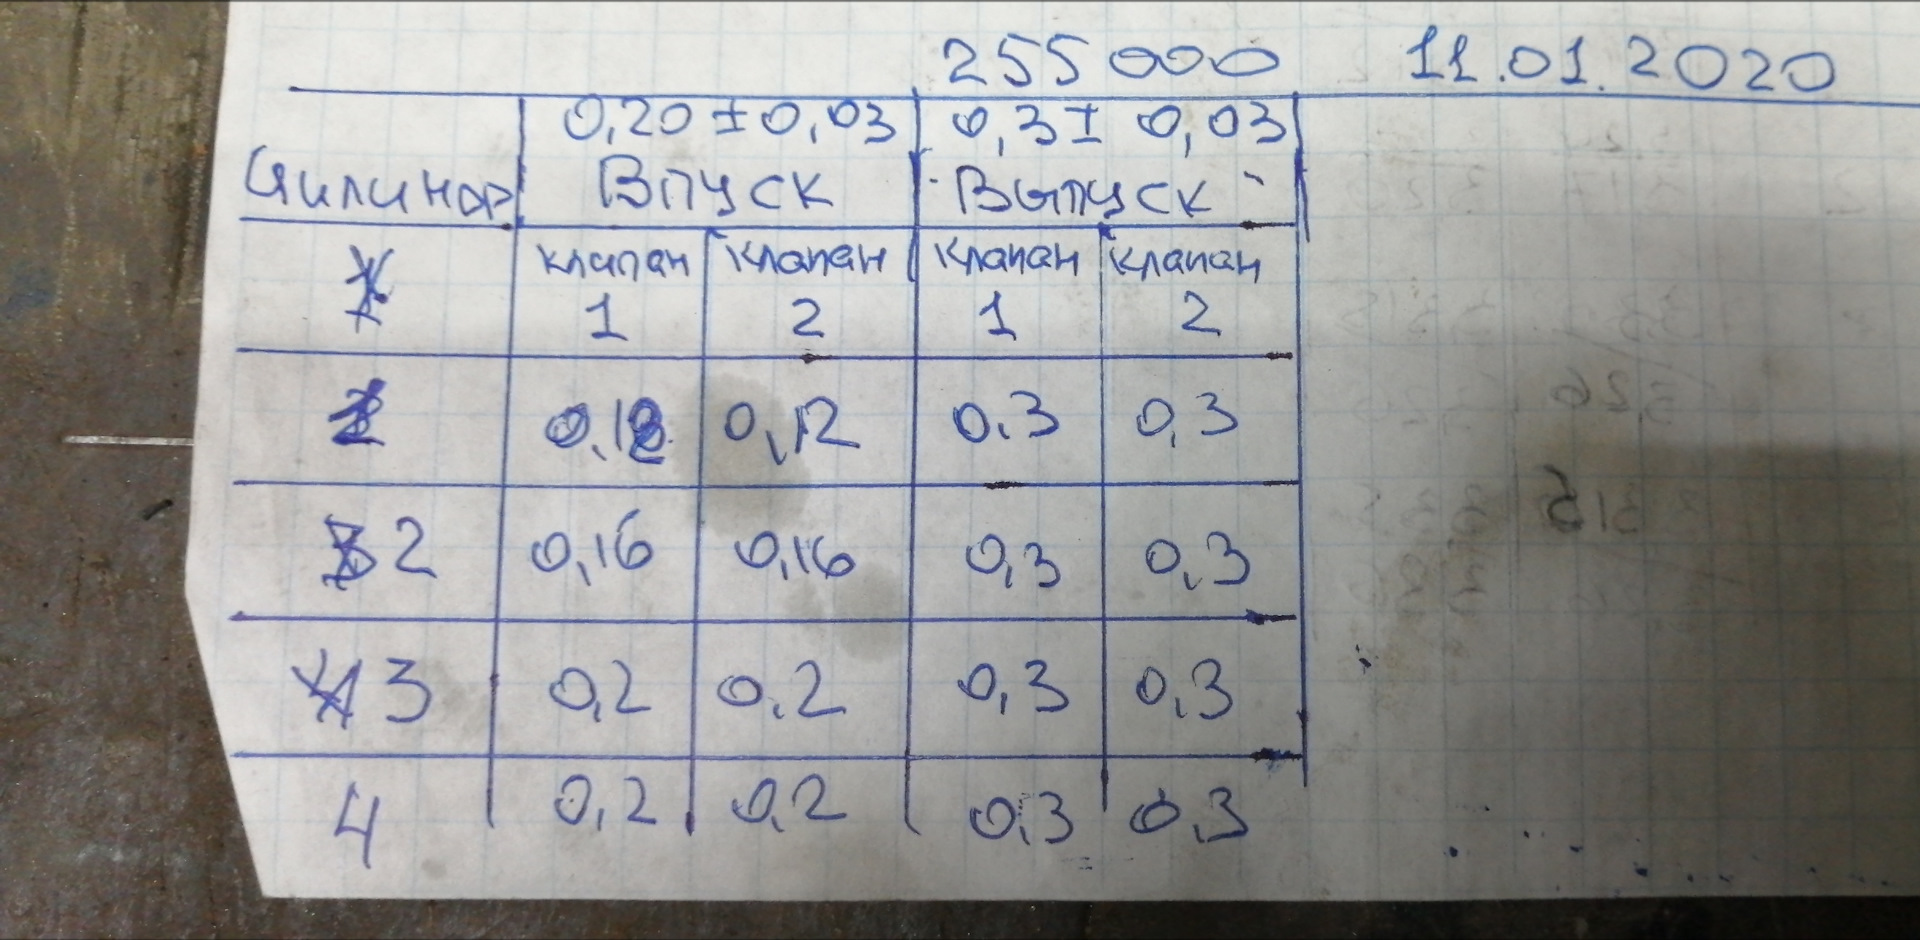 255 000 11.01.2020
0,20 ± 0,03 0,3 ± 0,03
Цилиндр Впуск Выпуск
клапан клапан клапан клапан
1 2 1 2
0,12 0,3 0,3
2 0,16 0,16 0,3 0,3
3 0,2 0,2 0,3 0,3
4 0,2 0,2 0,3 0,3